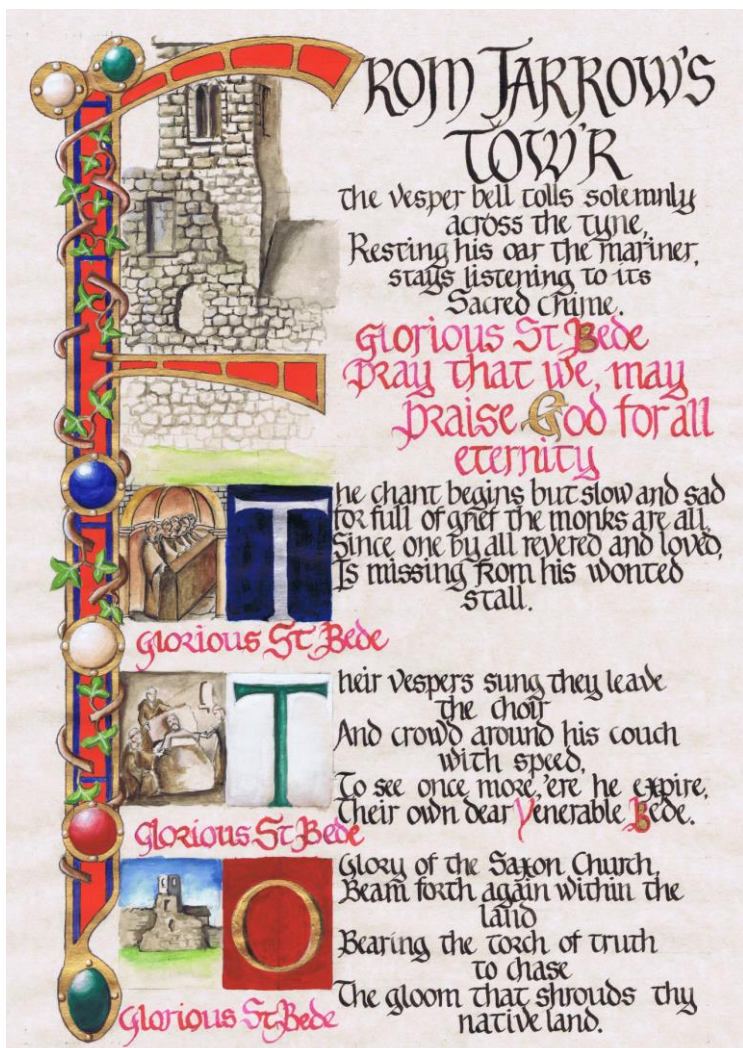 FROM JARROW'S
TOW'R
the vesper bell tolls solemnly
across the tyne,
Resting his oar the mariner,
stays listening to its
Sacred chime.
Glorious St Bede
Pray that we, may
Praise God for all
eternity
The chant begins but slow and sad
for full of grief the monks are all,
Since one by all revered and loved,
Is missing from his wonted
stall.
Glorious St Bede
Their vespers sung they leave
the choir
And crowd around his couch
with speed,
To see once more, 'ere he expire,
Their own dear Venerable Bede.
Glorious St Bede
O Glory of the Saxon Church,
Beam forth again within the
land
Bearing the torch of truth
to chase
The gloom that shrouds thy
native land.
Glorious St Bede